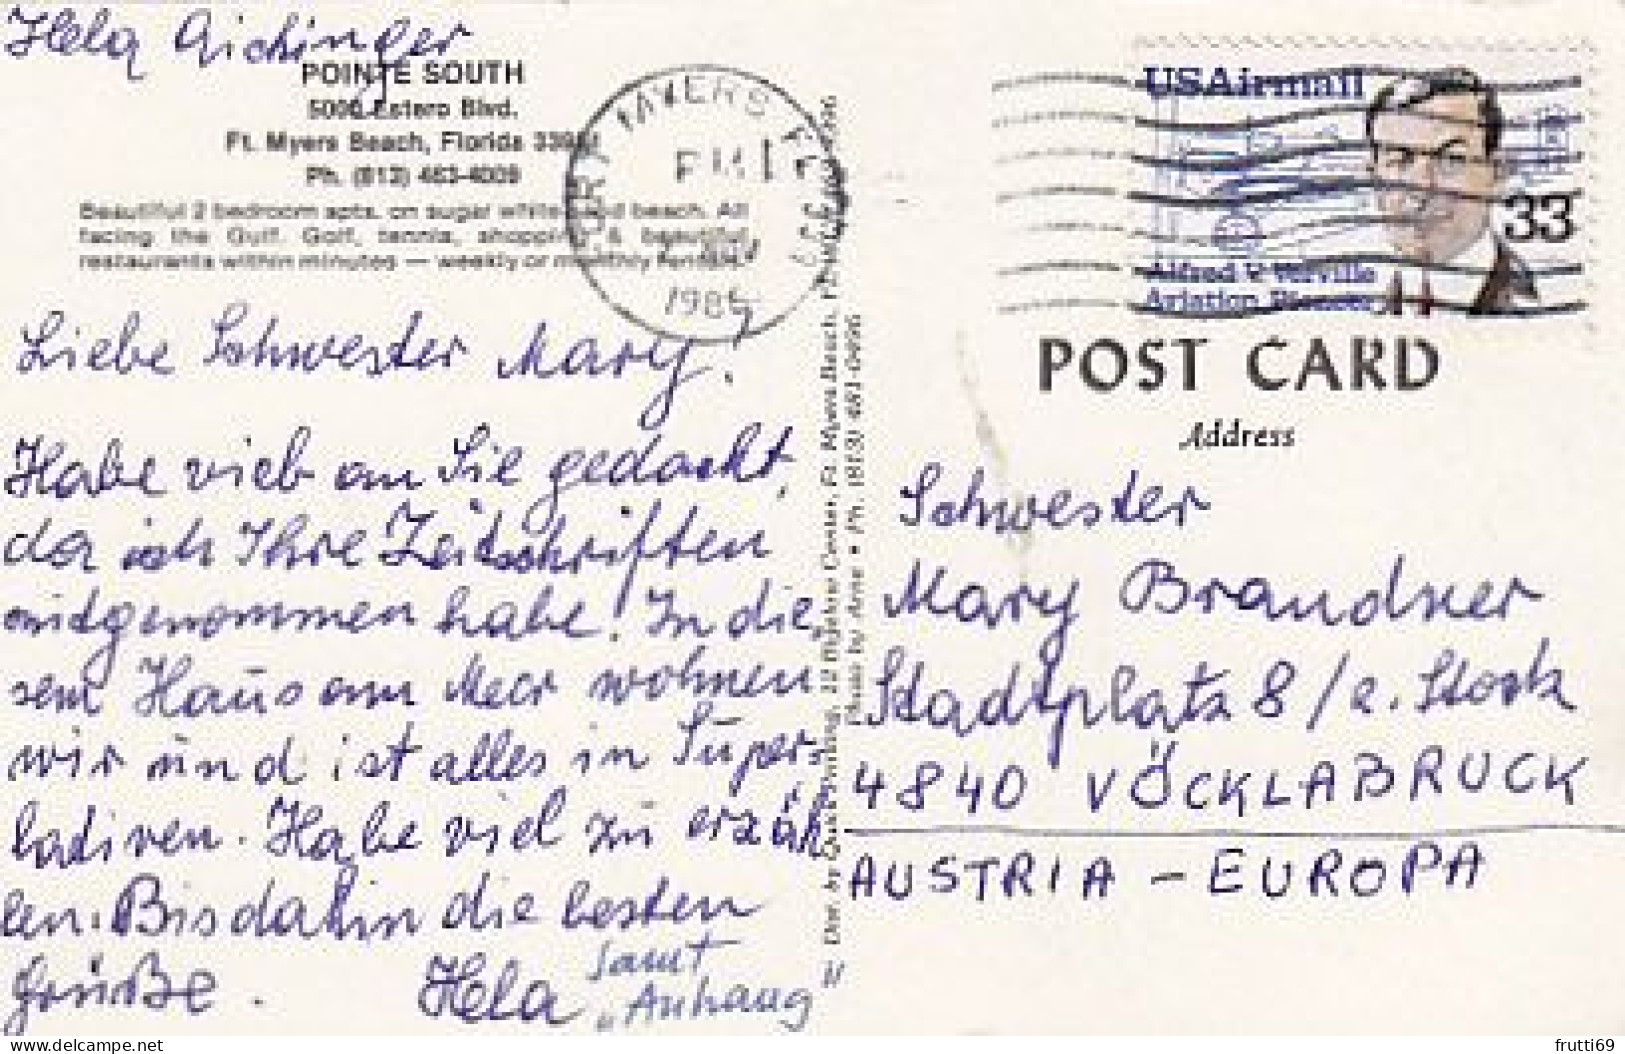 Hela Aichinger
POINTE SOUTH
5000 Estero Blvd.
Ft. Myers Beach, Florida
Ph. (813) 463-4009
Beautiful 2 bedroom apts. on sugar white sand beach. All
facing the Gulf. Golf, tennis, shopping & beautiful
restaurants within minutes — weekly or monthly rentals.
FORT MYERS FL
PM
1985
USAirmail
33
Alfred V. Verville
Aviation Pioneer
POST CARD
Address
Liebe Schwester Mary!
Habe vieb an Sie gedacht,
da ich Ihre Zeitschriften
mitgenommen habe! In die,
sem Haus am Meer wohnen
wir und ist alles in Super,
lativen. Habe viel zu erzäh,
len. Bis dahin die besten
Grüße. Hela samt
"Anhang"
Schwester
Mary Brandner
Stadtplatz 8/2. Stock
4840 VÖCKLABRUCK
AUSTRIA - EUROPA
Ft. Myers Beach,
Photo by • Ph. (813) 481-0696
frutti69